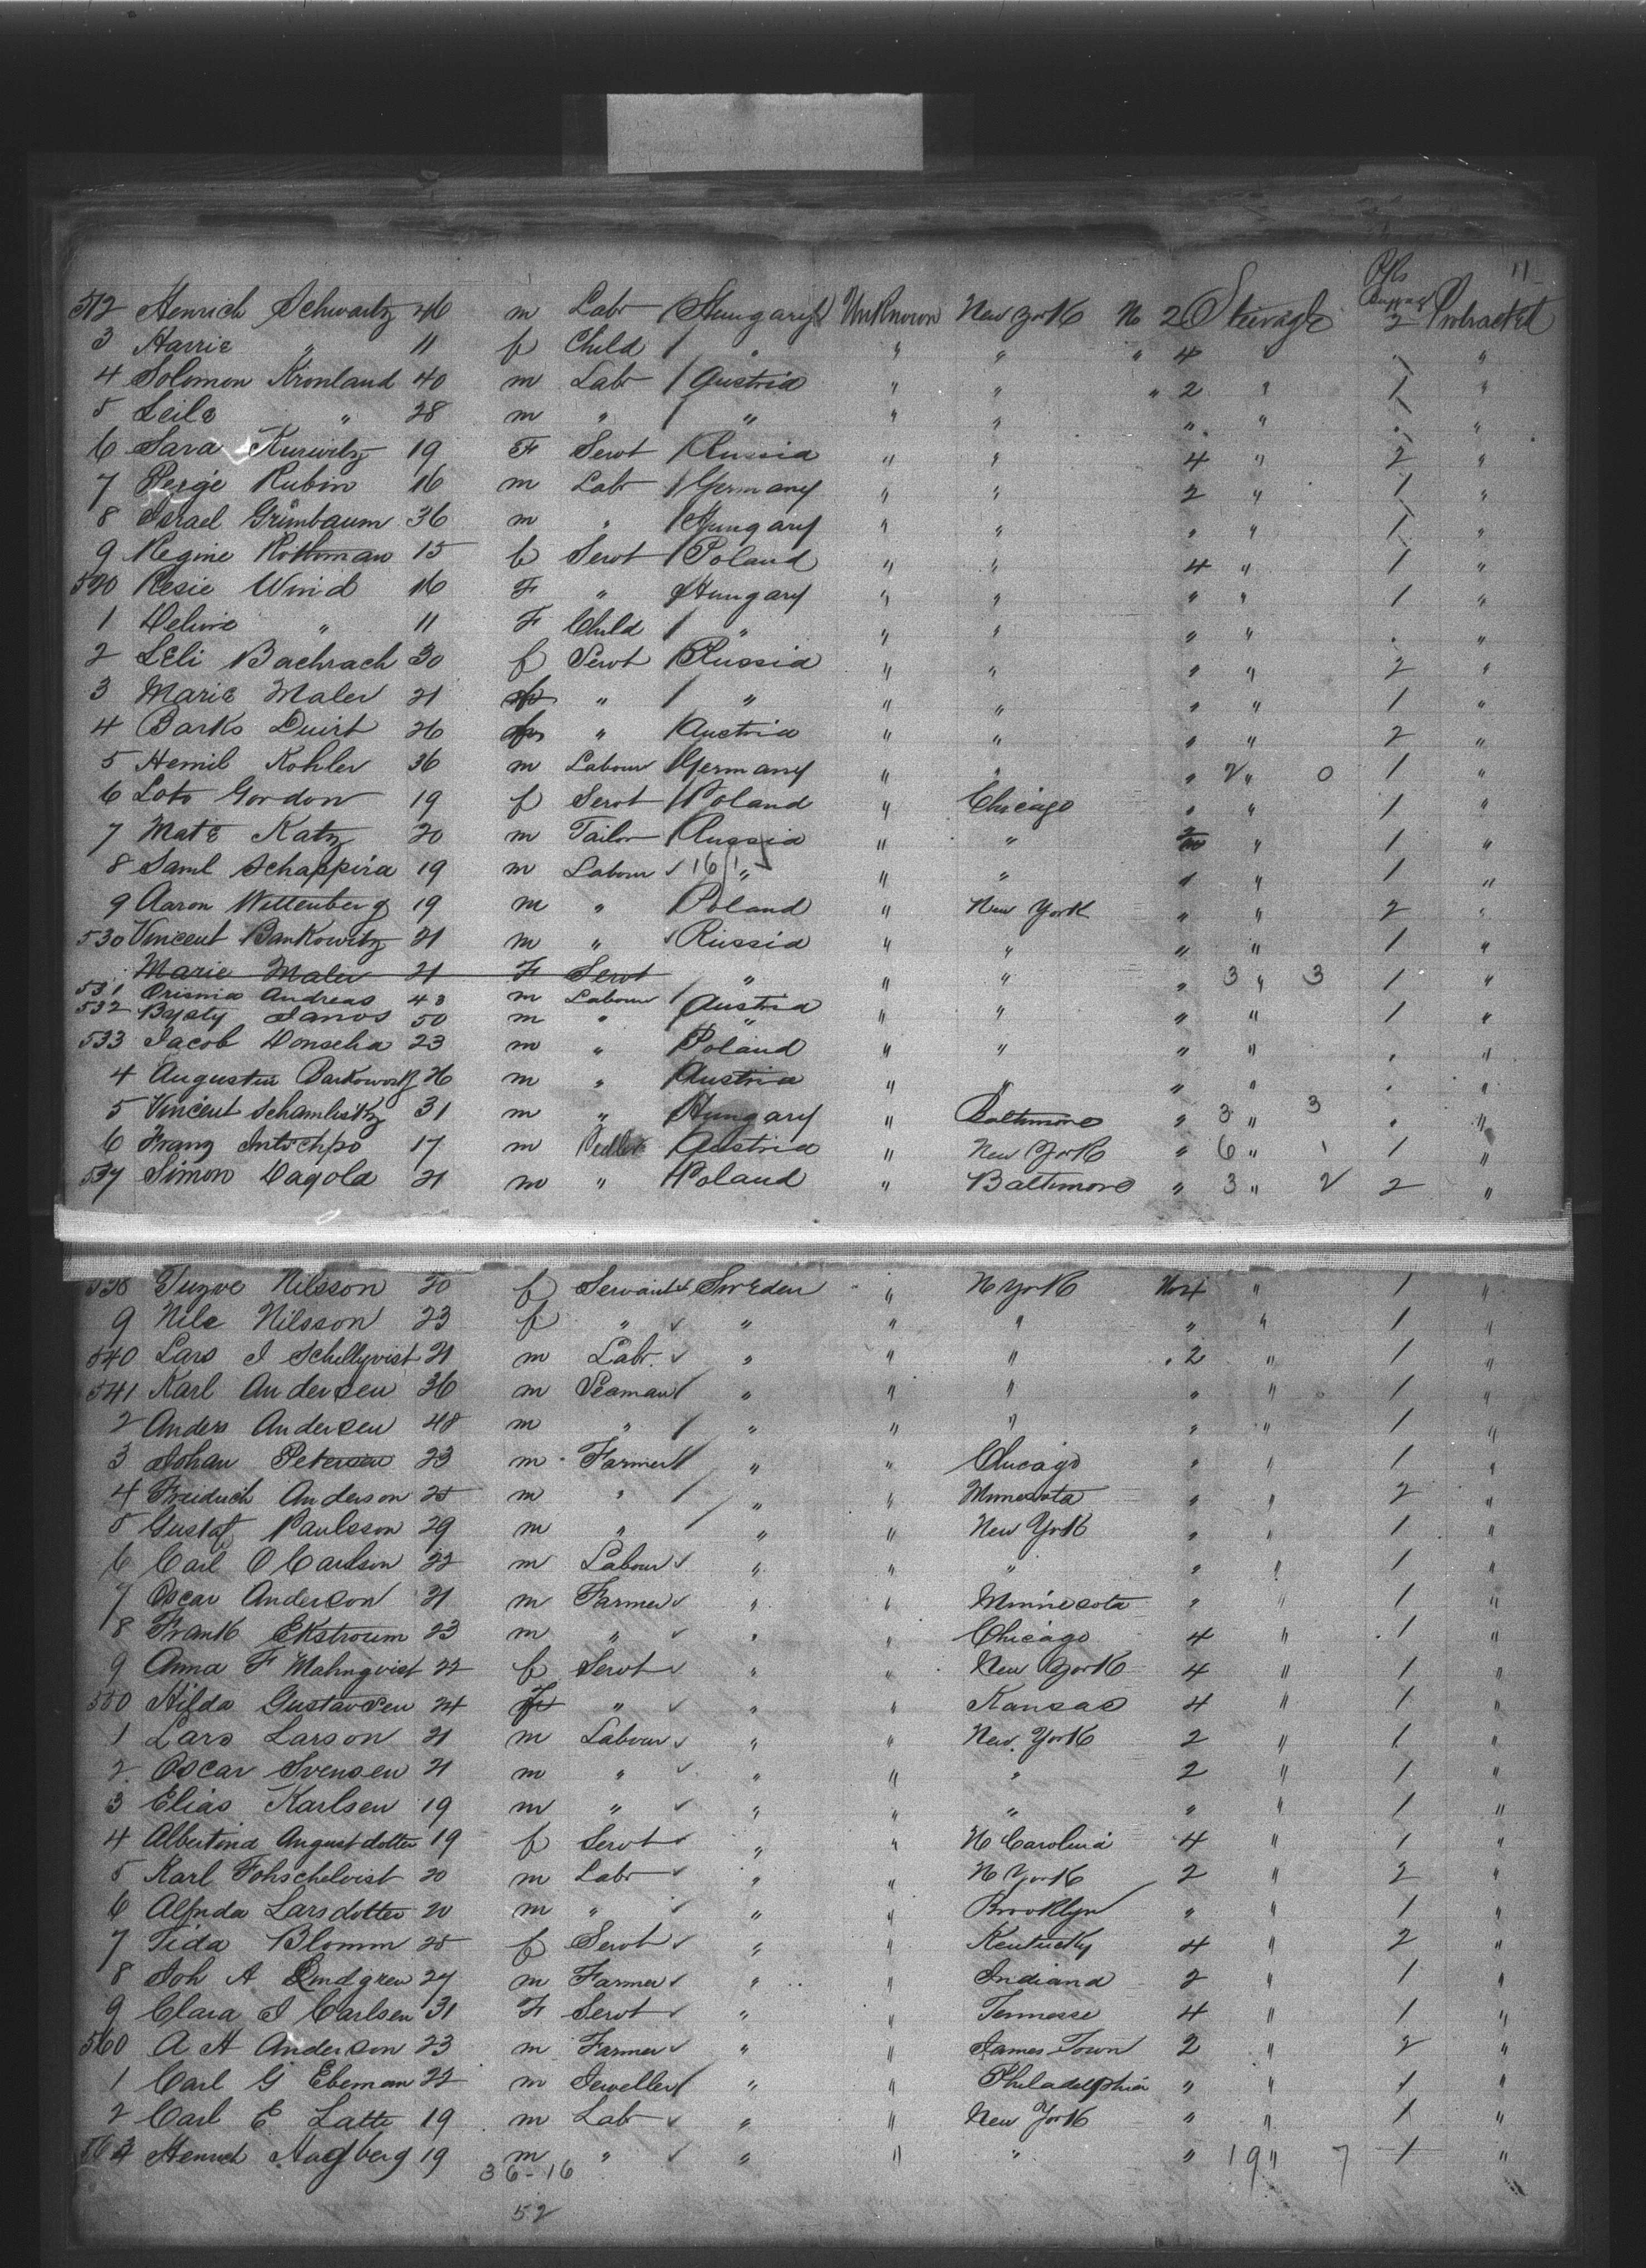 11
Pgs
Baggage
512 Henrich Schwartz 46 m Labr / Hungary Unknown New York No 2 Steerage 2 Protracted
3 Harrie " 11 f Child / " " " " 4 " "
4 Solomon Kronland 40 m Labr / Austria " " " 2 " 1 "
5 Leile " 28 m " / " " " " " "
6 Sara Kurwitz 19 F Servt / Russia " " 4 " 2 "
7 Perge Rubin 16 m Labr / Germany " " 2 " 1 "
8 Israel Grünbaum 36 m " / Hungary " " " " 1 "
9 Regine Rothman 15 f Servt / Poland " " 4 " 1 "
520 Resie Wind 16 F " Hungary " " " " 1 "
1 " 11 F Child / " " " " " "
2 Leli Bachrach 30 f Servt / Russia " " " " 2 "
3 Marie Maler 21 f " / " " " " " 1 "
4 Barks 26 f " / Austria " " " " 2 "
5 Hemil Kohler 36 m Labour / Germany " " " 2 " 0 1 "
6 Loto Gordon 19 f Servt / Poland " Chicago " " 1 "
7 Mate Katz 20 m Tailor / Russia " " 2 " 1 "
8 Saml Schappira 19 m Labour ✓ 16/1 " " " " " 1 "
9 Aaron Wittenberg 19 m " Poland " New York " " 2 "
530 Vincent Bankowitz 21 m " ✓ Russia " " " " 1 "
Marie Maler 21 F Servt / " " " " 3 " 3 1 "
531 Andreas 43 m Labour / Austria
532 Janos 50 m " " " " " " 1 "
533 Jacob Donscha 23 m " Poland " " " " "
4 Augustin 26 m " Austria " " " " "
5 Vincent 31 m " Hungary " Baltimore " 3 " 3 "
6 Franz 17 m Pedler Austria " New York " 6 " 1 1 "
537 Simon Dagola 21 m " Poland " Baltimore " 3 " 2 2 "
538 Nilsson 20 f Servant ✓ Sweden " N York No 4 " 1 "
9 Nils Nilsson 23 f " ✓ " " " " " 1 "
540 Lars I Schellyvist 21 m Labr ✓ " " " " 2 " 1 "
541 Karl Andersen 36 m Seaman / " " " " " 1 "
2 Anders Andersen 48 m " / " " " " " 1 "
3 Johan Petersen 23 m Farmer / " " Chicago " " 1 "
4 Freidrich Anderson 25 m " / " " Minnesota " " 2 "
5 Gustaf Paulsson 29 m " / " " New York " " 1 "
6 Carl O Carlson 22 m Labour ✓ " " " " " 1 "
7 Oscar Anderson 21 m Farmer ✓ " " Minnesota " " 1 "
8 Frank Ekstroum 23 m " ✓ " " Chicago 4 " 1 "
9 Anna F Malmqvist 22 f Servt ✓ " " New York 4 " 1 "
550 Hilda Gustavsen 24 F " ✓ " " Kansas 4 " 1 "
1 Lars Larson 21 m Labour ✓ " " New York 2 " 1 "
2 Oscar Svensen 21 m " ✓ " " " 2 " 1 "
3 Elias Karlsen 19 m " ✓ " " " " " 1 "
4 Albertina Augustdotter 19 f Servt ✓ " " N Carolina 4 " 1 "
5 Karl Fohschelvist 20 m Labr ✓ " " N York 2 " 2 "
6 Alfrida Larsdotter 20 m " ✓ " " Brooklyn " " 1 "
7 Tida Blomm 25 f Servt ✓ " " Kentucky 4 " 2 "
8 Joh A Lindgren 27 m Farmer ✓ " " Indiana 2 " 1 "
9 Clara I Carlsen 31 F Servt ✓ " " Tennesse 4 " 1 "
560 A H Anderson 23 m Farmer ✓ " " James Town 2 " 2 "
1 Carl G Ekeman 22 m Jeweller / " " Philadelphia " " 1 "
2 Carl E Latte 19 m Labr ✓ " " New York " " 1 "
563 Henrich Hagberg 19 m " ✓ " " " " 19 " 7 1 "
36-16
52